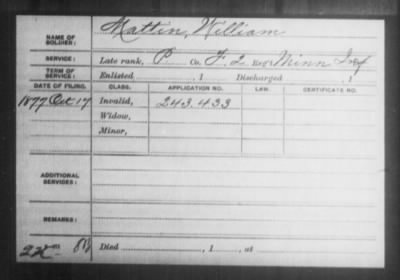 NAME OF SOLDIER: Mattin, William
SERVICE: Late rank, P Co. F. 2 Reg't Minn Inf
TERM OF SERVICE: Enlisted , 1 Discharged , 1
DATE OF FILING. CLASS. APPLICATION NO. LAW. CERTIFICATE NO.
1877 Oct 17 Invalid, 243.433
Widow,
Minor,
ADDITIONAL SERVICES:
REMARKS:
Died , 1 , at